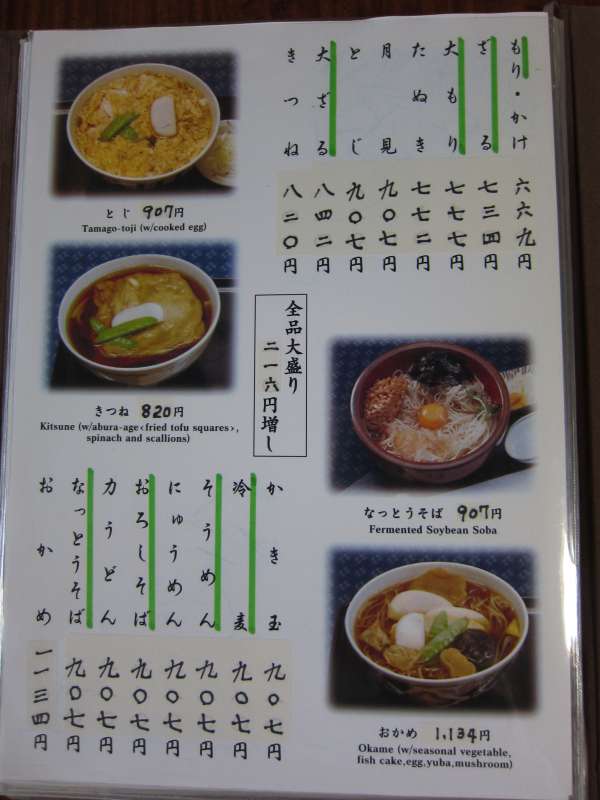 もり・かけ 六六九円
ざる 七三四円
大もり 七七七円
たぬき 七七二円
月見 九〇七円
とじ 九〇七円
大ざる 八四二円
きつね 八二〇円
とじ 907円
Tamago-toji (w/cooked egg)
きつね 820円
Kitsune (w/abura-age‹fried tofu squares›,
spinach and scallions)
全品大盛り
二一六円増し
なっとうそば 907円
Fermented Soybean Soba
かき玉 九〇七円
冷麦 九〇七円
そうめん 九〇七円
にゅうめん 九〇七円
おろしそば 九〇七円
力うどん 九〇七円
なっとうそば 九〇七円
おかめ 一一三四円
おかめ 1,134円
Okame (w/seasonal vegetable,
fish cake,egg,yuba,mushroom)